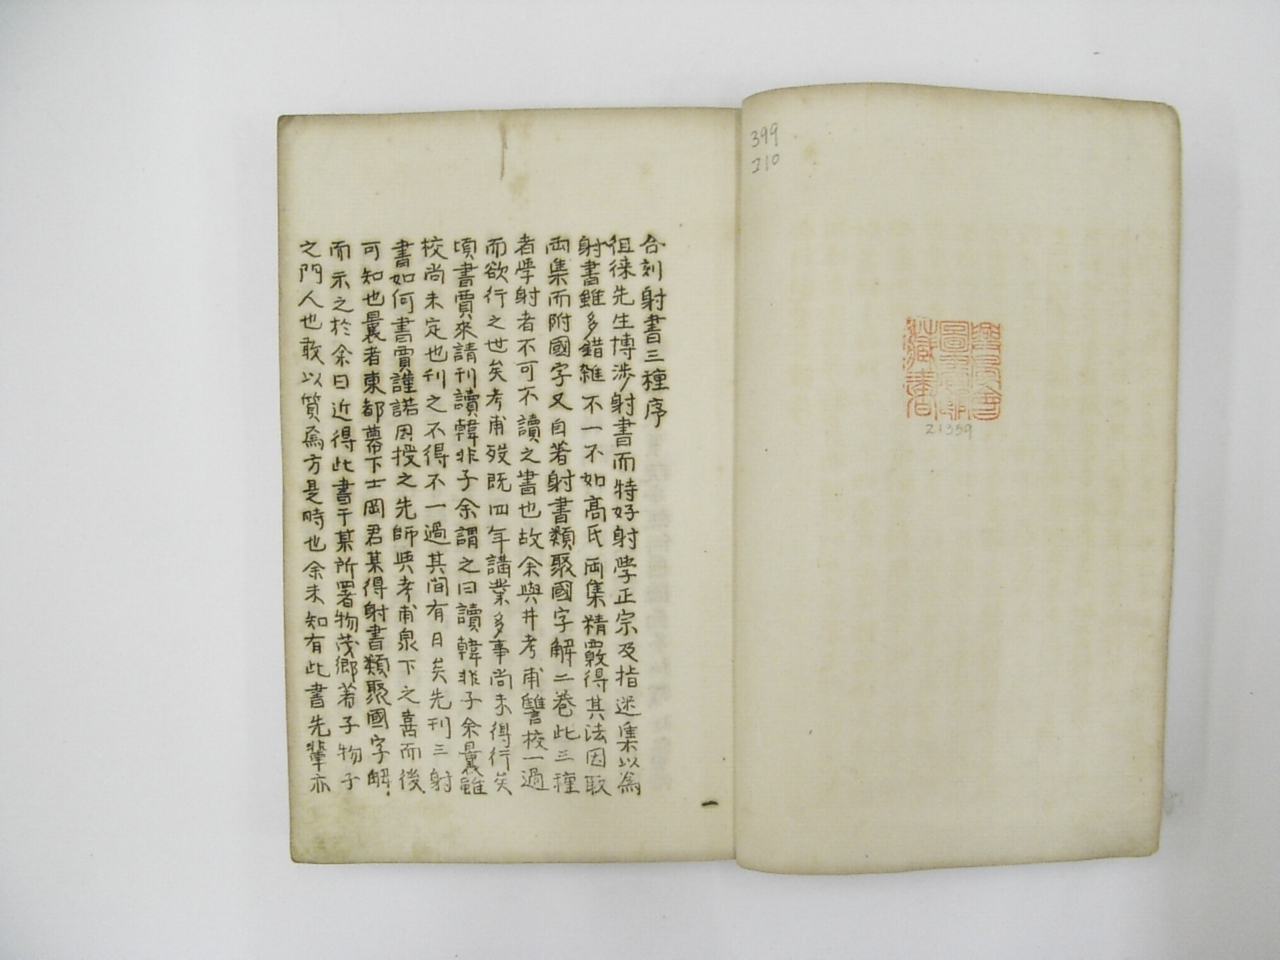 399
210
21559
合刻射書三種序
徂徠先生博涉射書而特好射學正宗及指迷集以為
射書雖多錯雜不一不如高氏両集精覈得其法因取
両集而附國字又自著射書類聚國字解二卷此三種
者學射者不可不讀之書也故余與井考甫讐校一過
而欲行之世矣考甫歿既四年講業多事尚未得行矣
頃書賈來請刊讀韓非子余謂之曰讀韓非子余曩雖
校尚未定也刊之不得不一過其間有日矣先刊三射
書如何書賈謹諾因授之先師與考甫泉下之喜而後
可知也曩者東都幕下士岡君某得射書類聚國字解
而示之於余曰近得此書于某所署物茂卿著子物子
之門人也敢以質焉方是時也余未知有此書先輩亦
一